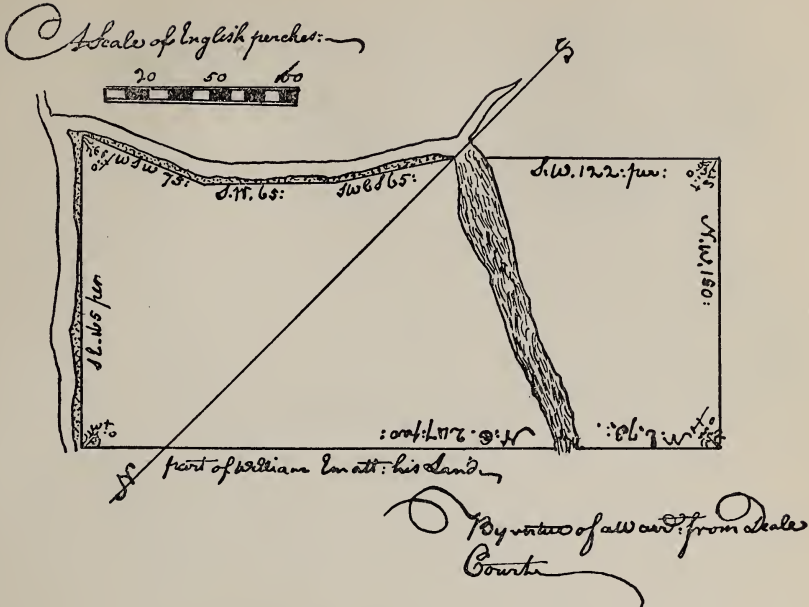 A Scale of English perches:
20 50 100
S
WSW 75:
S.W. 65:
SWbS 65:
S.W. 122: per:
N.W. 150:
SE. 165 per
N:E. 247: per:
N:E. 73:
N
part of William Ematt: his Land
By virtue of a Warr: from Deale
Courte